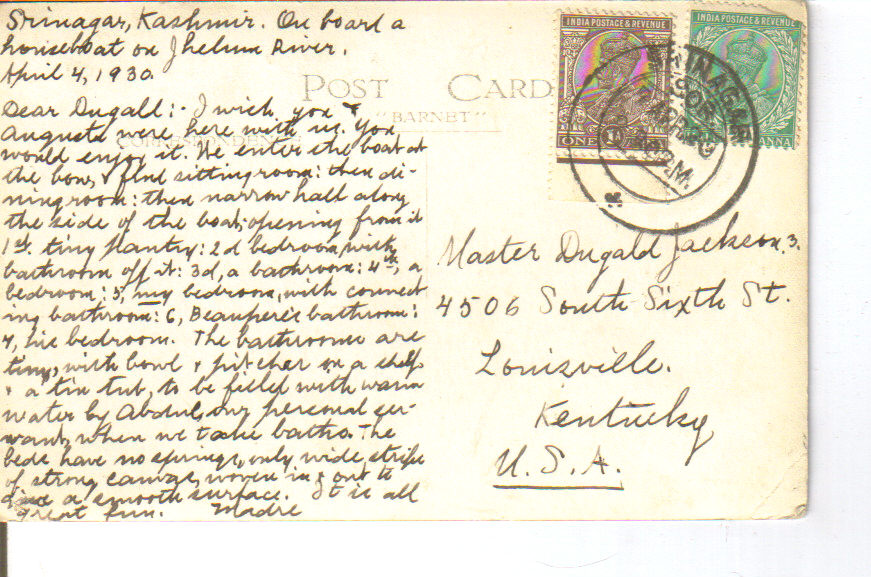 Srinagar, Kashmir. On board a
houseboat on Jhelum River.
April 4, 1930.
POST CARD
"BARNET"
CORRESPONDENCE
Dear Dugald:- I wish you &
Augusta were here with us. You
would enjoy it. We enter the boat at
the bow, & find sittingroom: then di-
ningroom: then narrow hall along
the side of the boat; opening from it
1st. tiny pantry: 2d bedroom, with
bathroom off it: 3d, a bathroom: 4th, a
bedroom: 5, my bedroom, with connect
ing bathroom: 6, Beaupere's bathroom:
7, his bedroom. The bathrooms are
tiny, with bowl & pitcher on a shelf
& a tin tub, to be filled with warm
water by Abdul, our personal ser-
vant, when we take baths. The
beds have no springs, only wide strips
of strong canvas, woven in & out to
give a smooth surface. It is all
great fun. Madre
INDIA POSTAGE & REVENUE
ONE
INDIA POSTAGE & REVENUE
ANNA
SRINAGAR
Master Dugald Jackson, 3.
4506 South Sixth St.
Louisville.
Kentucky
U.S.A.